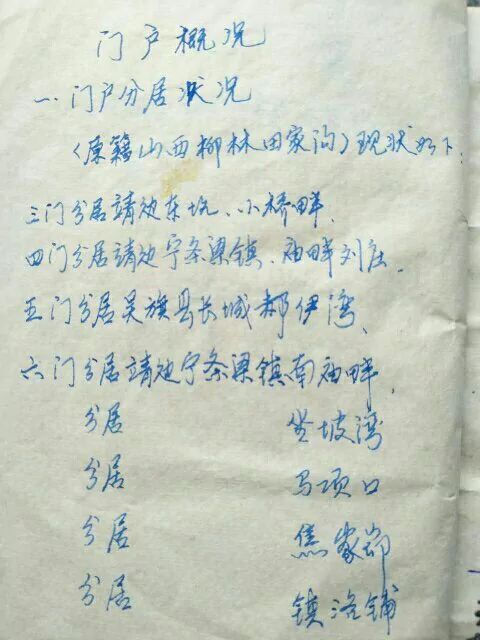 门户概况
一.门户分居状况
(原籍山西柳林田家沟)现状如下:
三门分居靖边东坑、小桥畔.
四门分居靖边宁条梁镇、庙畔刘庄.
五门分居吴旗县长城郝伊湾、
六门分居靖边宁条梁镇南庙畔,
分居 坡湾
分居 马项口
分居 焦家峁
分居 镇洛铺